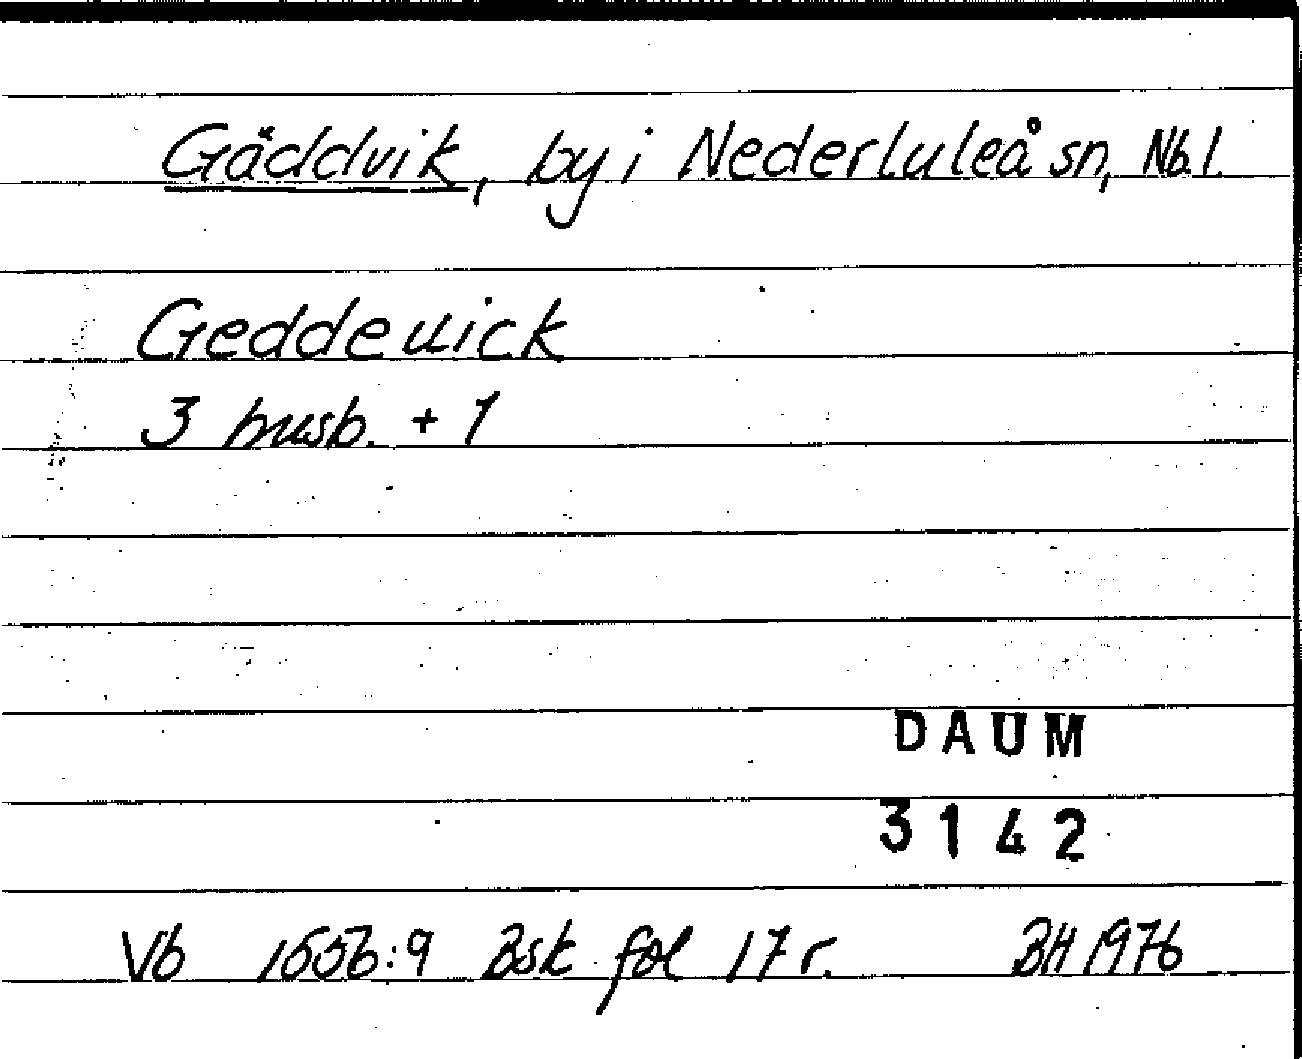 Gäddvik, by i Nederluleå sn, Nb.l.
Geddeuick
3 husb. + 1
DAUM
3142
Vb 1556:9 Bsk fol 17 r. BH 1976